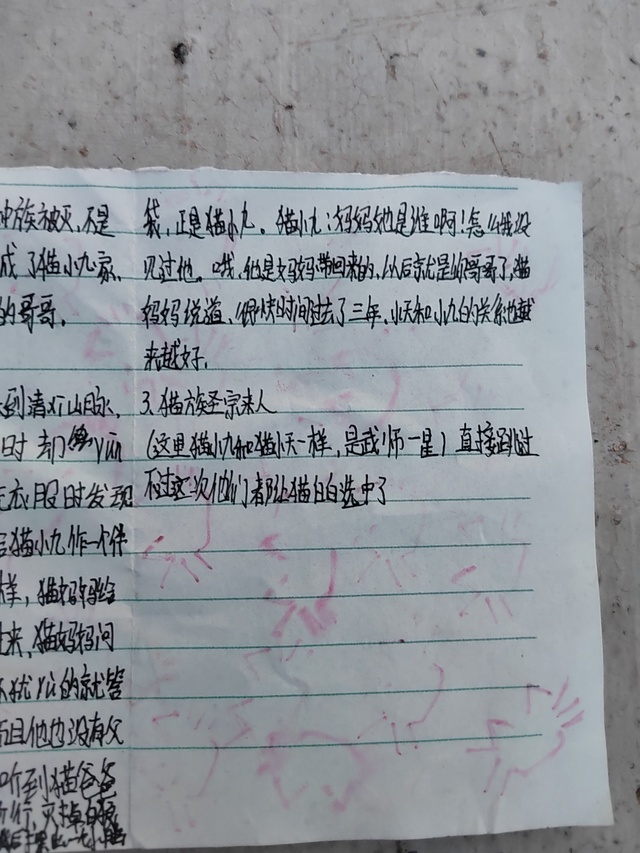 中族被灭,不是
成了猫小九家
的哥哥。
到清灯山脉,
时却
衣服时发现
猫小九作一个伴
样,猫妈妈给
来,猫妈妈问
不犹yù的就答
而且他也没有父
听到猫爸爸
行,灭掉
袋,正是猫小九。猫小九:妈妈他是谁啊!怎么我没
见过他。哦,他是妈妈带回来的,以后就是你哥哥了,猫
妈妈说道、很快时间过去了三年,小天和小九的关系也越
来越好,
3、猫族圣宗来人
(这里猫小九和猫小天一样,是武师一星)直接跳过
不过这次他们都让猫白白选中了